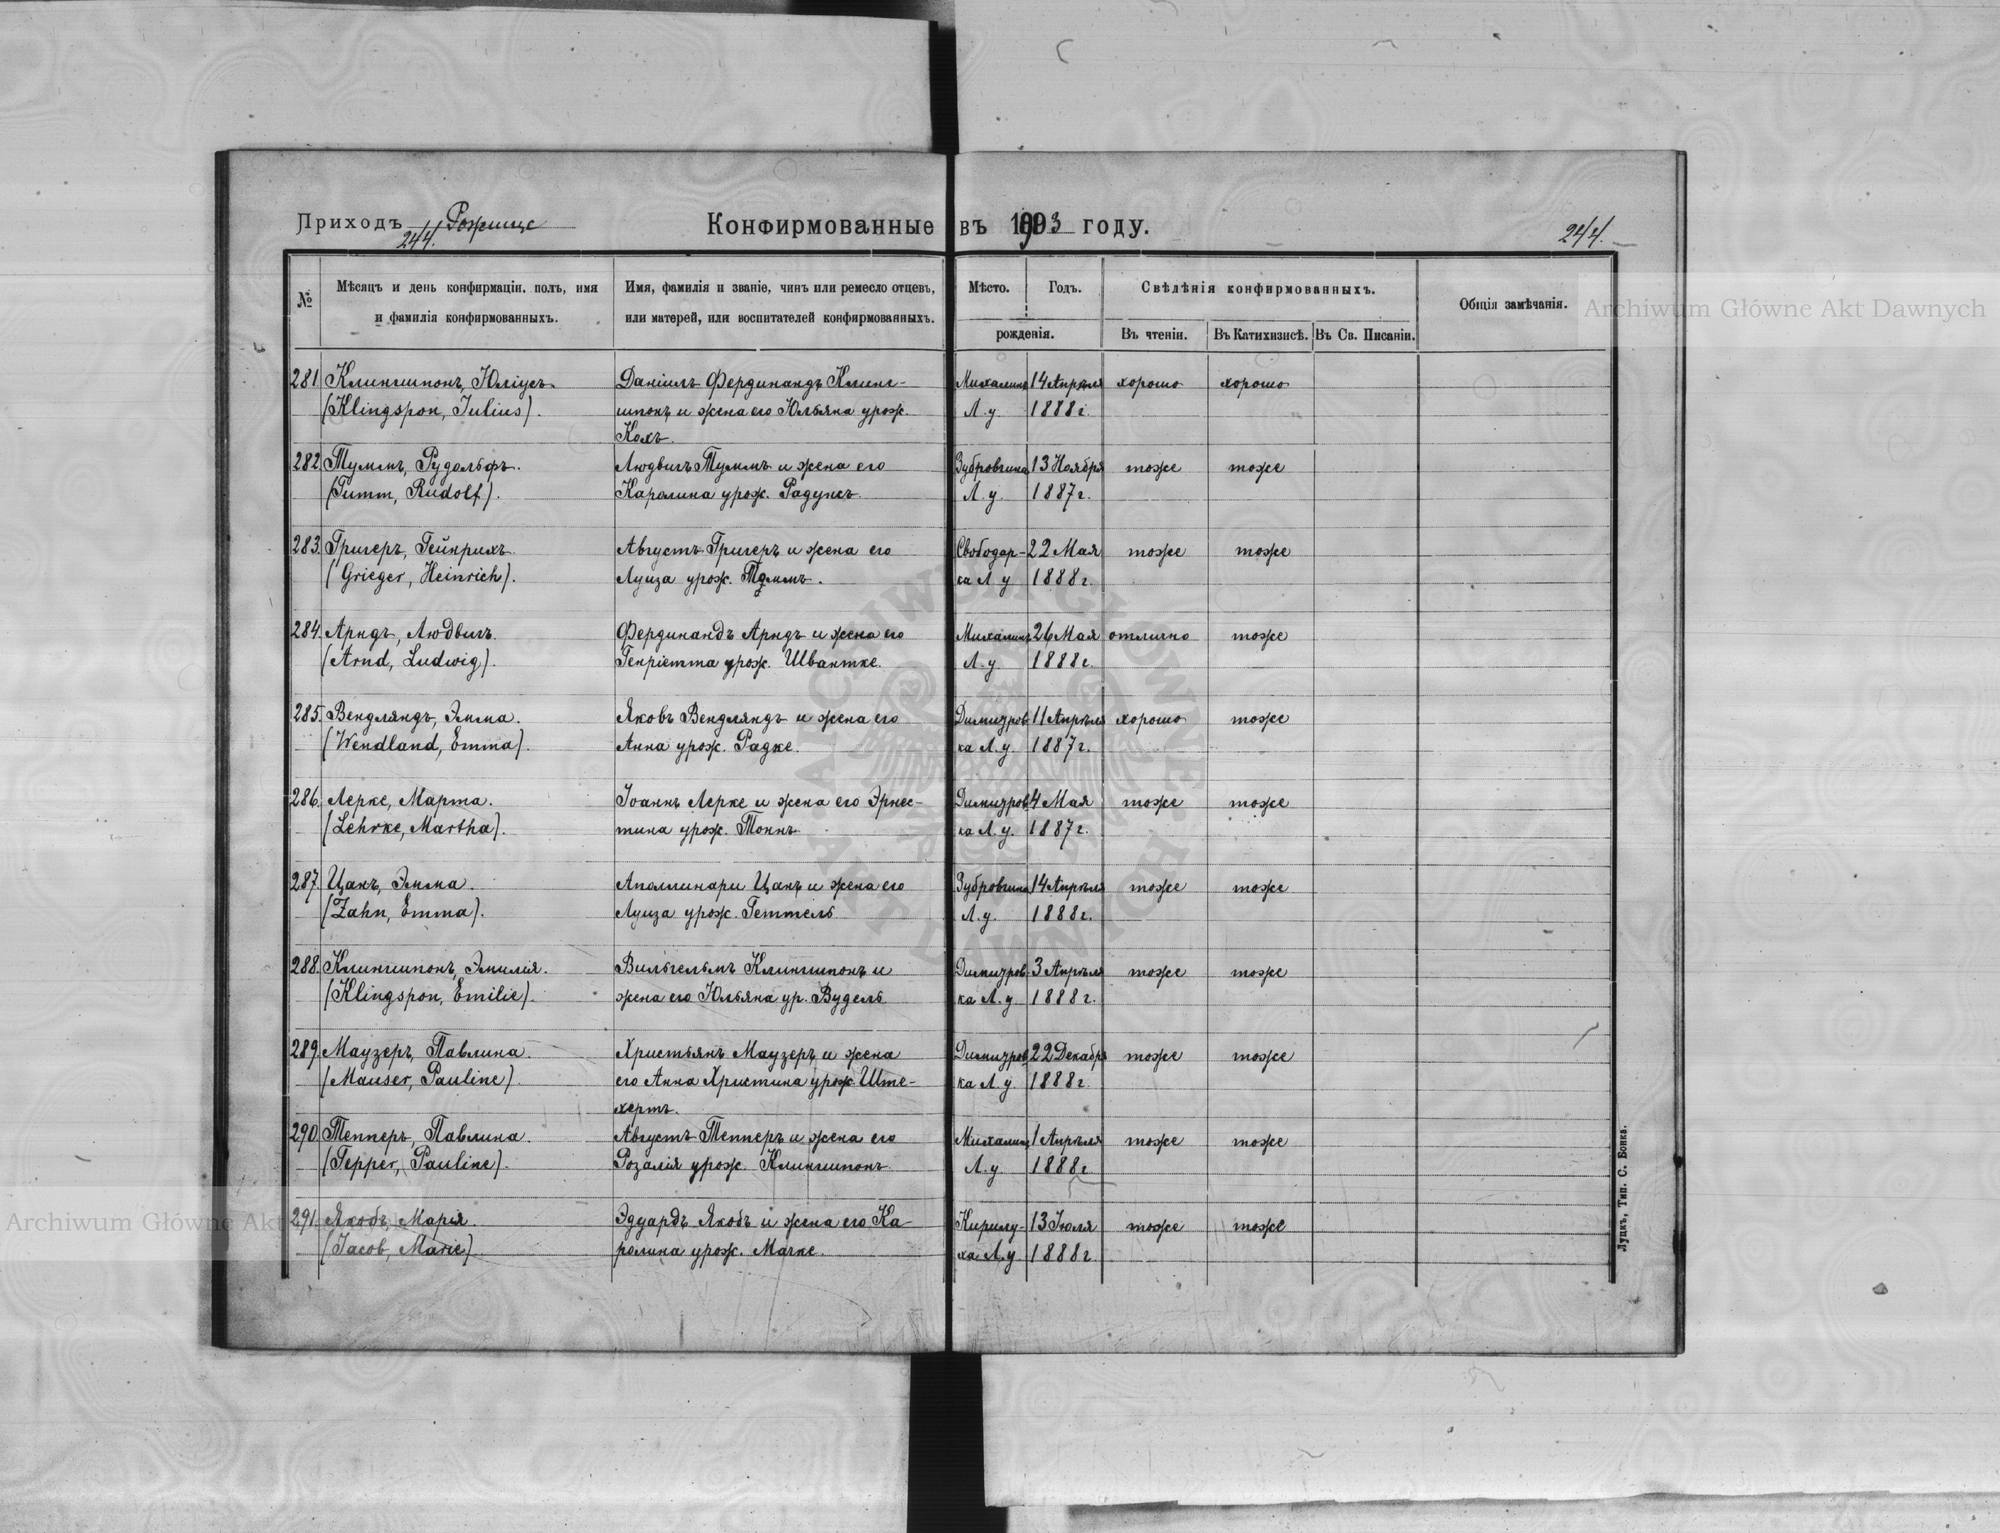 Приходъ Рожище
244.
Конфирмованные въ 1903 году.
244.
№
Мѣсяцъ и день конфирмаціи, полъ, имя
и фамилія конфирмованныхъ.
Имя, фамилія и званіе, чинъ или ремесло отцевъ,
или матерей, или воспитателей конфирмованныхъ.
Мѣсто. Годъ.
рожденія.
Свѣдѣнія конфирмованныхъ.
Въ чтеніи. Въ Катихизисѣ. Въ Св. Писаніи.
Общія замѣчанія.
281 Клингшпонъ, Юліусъ. Даніилъ Фердинандъ Клинг- Михалинъ 14 Апрѣля хорошо хорошо
(Klingspon, Julius). шпонъ и жена его Юльяна урож. Л. у. 1888 г.
Кохъ.
282 Туммъ, Рудольфъ. Людвигъ Туммъ и жена его Зубровщина 13 Ноября тоже тоже
(Tumm, Rudolf). Каролина урож. Радунсъ. Л. у. 1887 г.
283. Григеръ, Гейнрихъ. Августъ Григеръ и жена его Свободар- 22 Мая тоже тоже
(Grieger, Heinrich). Луиза урож. Туммъ. ка Л. у 1888 г.
284. Арндъ, Людвигъ. Фердинандъ Арндъ и жена его Михалинъ 26 Мая отлично тоже
(Arnd, Ludwig). Генріетта урож. Швантке. Л. у. 1888 г.
285. Вендляндъ, Эмма. Яковъ Вендляндъ и жена его Димитров 11 Апрѣля хорошо тоже
(Wendland, Emma). Анна урож. Радке. ка Л. у. 1887 г.
286. Лерке, Марта. Іоаннъ Лерке и жена его Эрнес- Димитров 4 Мая тоже тоже
(Lehrke, Martha). тина урож. Тоннъ. ка Л. у. 1887 г.
287. Цанъ, Эмма. Аполлинари Цанъ и жена его Зубровщина 14 Апрѣля тоже тоже
(Zahn, Emma). Луиза урож. Геттель. Л. у. 1888 г.
288. Клингшпонъ, Эмилія. Вильгельмъ Клингшпонъ и Димитров- 3 Апрѣля тоже тоже
(Klingspon, Emilie). жена его Юльяна ур. Вудель. ка Л. у 1888 г.
289. Маузеръ, Павлина. Христьянъ Маузеръ и жена Димитров 22 Декабря тоже тоже
(Mauser, Pauline). его Анна Христина урож. Ште- ка Л. у. 1888 г.
хертъ.
290. Тепперъ, Павлина. Августъ Тепперъ и жена его Михалин 1 Апрѣля тоже тоже
(Tepper, Pauline). Розалія урож. Клингшпонъ. Л. у 1888 г
291. Якобъ, Марія. Эдуардъ Якобъ и жена его Ка- Кирилу- 13 Іюля тоже тоже
(Jacob, Marie). ролина урож. Мачке. ха Л. у. 1888 г.
Луцкъ, Тип. С. Бонкъ.
Archiwum Główne Akt Dawnych
Archiwum Główne Akt
ARCHIWUM GŁÓWNE AKT DAWNYCH